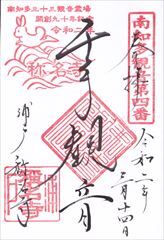 南知多三十三観音霊場
開創九十年記念
令和二年
称名寺
南知多観音
第四番
奉拝
千手観音
令和二年
三月十四日
称名寺